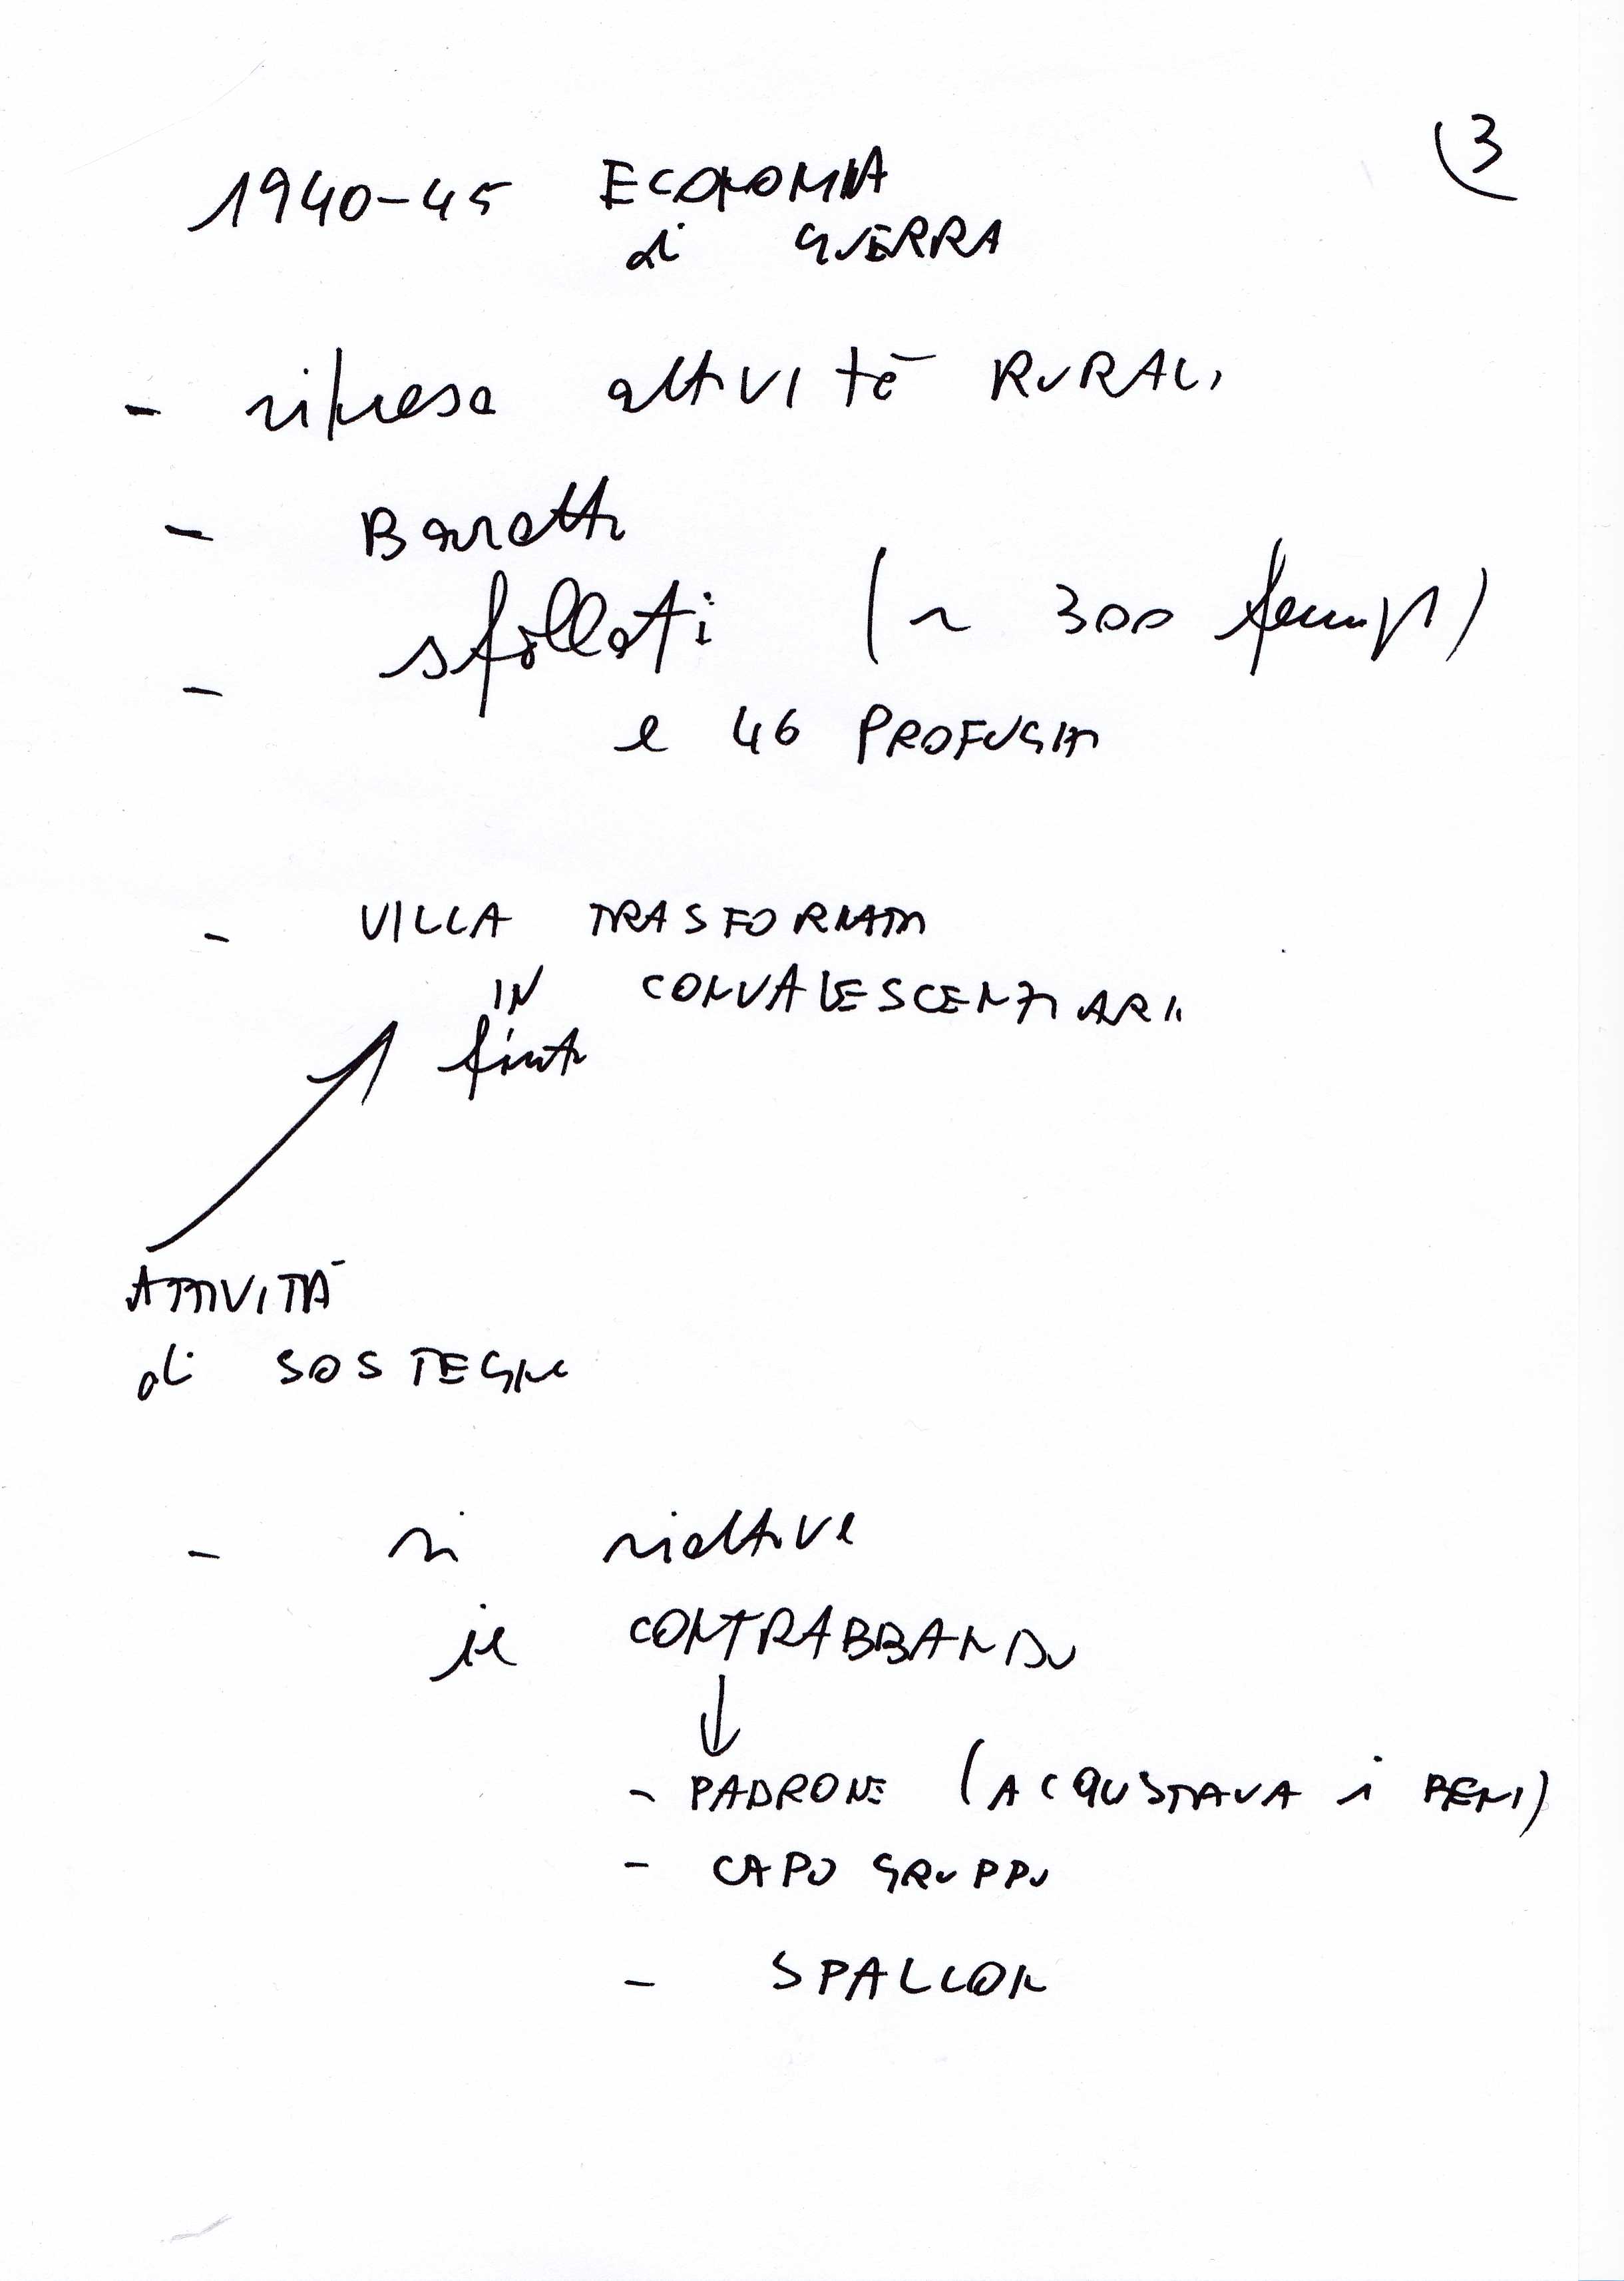 3
1940-45 ECONOMIA
di GUERRA
- ripresa attività RURALI
- Baratto
- sfollati (~ 300 famigl)
e 46 PROFUGHI
- VILLA TRASFORMATA
IN CONVALESCENZIARIO
ATTIVITÀ
di SOSTEGNO
- si riattiva
il CONTRABBANDO
↓
- PADRONE (ACQUSTAVA i BENI)
- CAPO GRUPPO
- SPALLONI